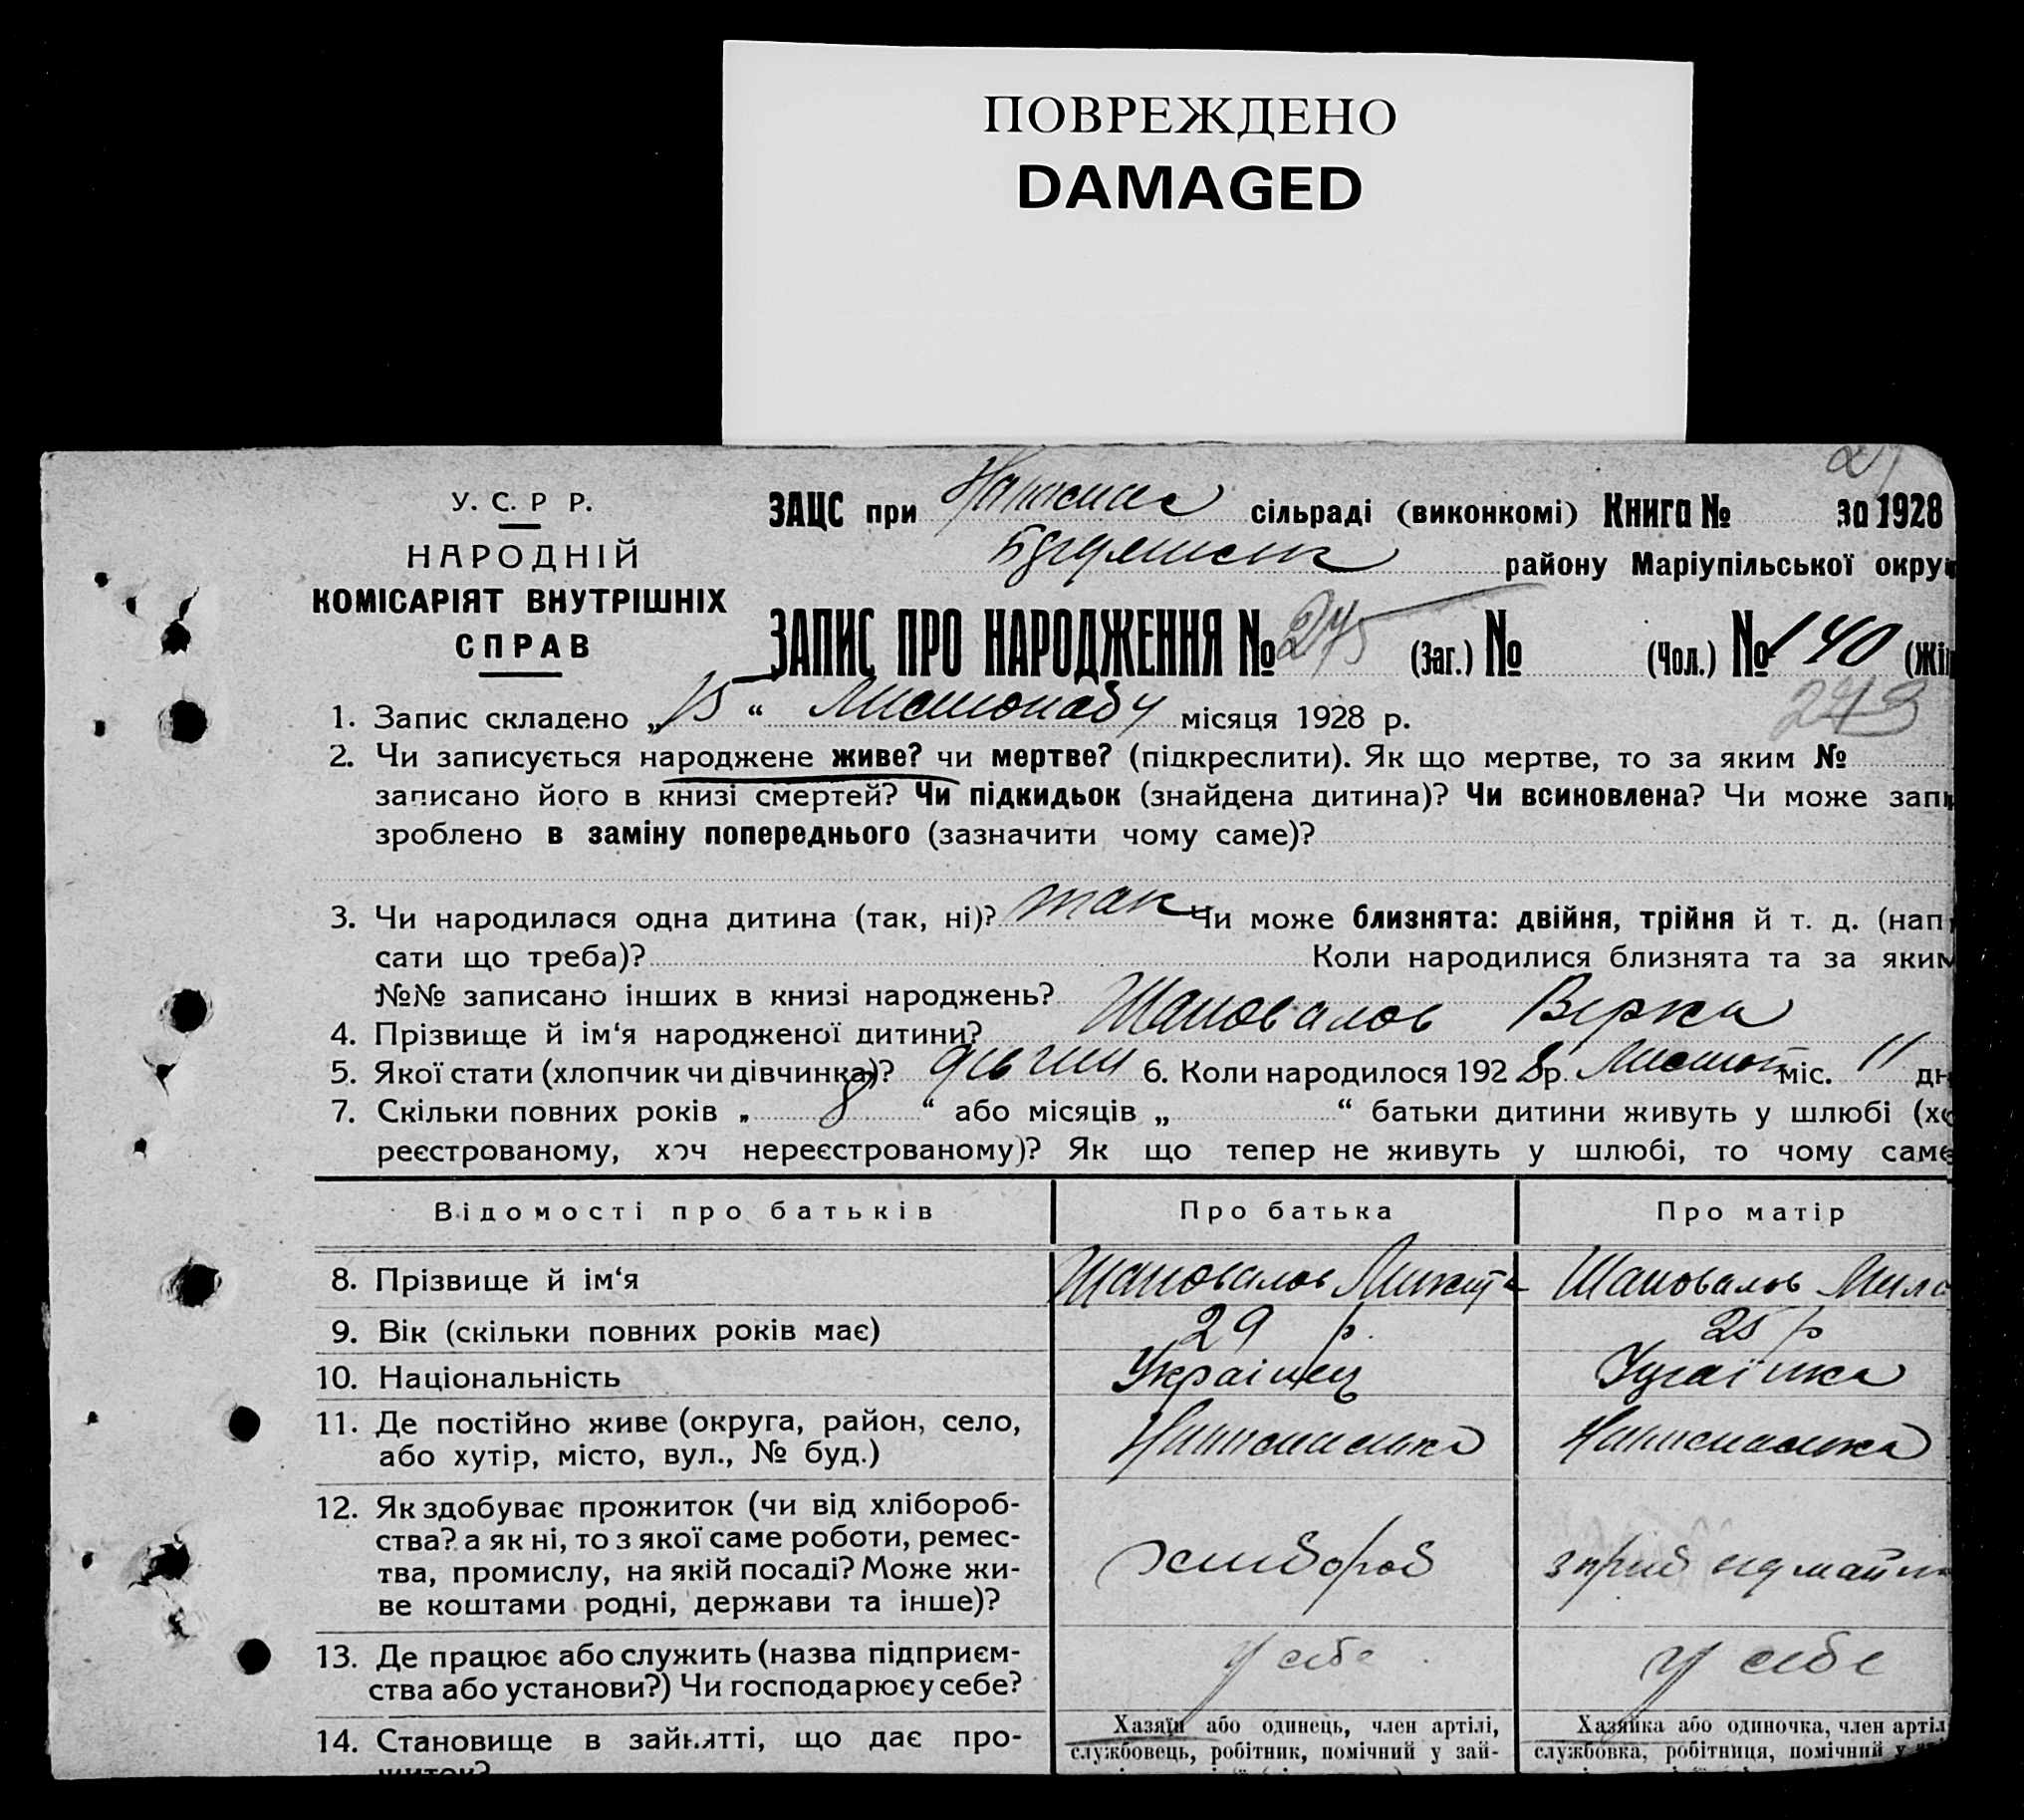 ПОВРЕЖДЕНО
DAMAGED
У. С. Р Р.
НАРОДНІЙ
КОМІСАРІЯТ ВНУТРІШНІХ
СПРАВ
ЗАЦС при сільраді (виконкомі) Книга № за 1928
району Маріупільської округ
ЗАПИС ПРО НАРОДЖЕННЯ № 275 (Заг.) № (Чол.) № 140 (Жі
243
1. Запис складено „15“ Листопаду місяця 1928 р.
2. Чи записується народжене живе? чи мертве? (підкреслити). Як що мертве, то за яким №
записано його в книзі смертей? Чи підкидьок (знайдена дитина)? Чи всиновлена? Чи може запи
зроблено в заміну попереднього (зазначити чому саме)?
3. Чи народилася одна дитина (так, ні)? так Чи може близнята: двійня, трійня й т. д. (нап
сати що треба)? Коли народилися близнята та за яким
№№ записано інших в книзі народжень?
4. Прізвище й ім‘я народженої дитини? Шаповалов Вєрка
5. Якої стати (хлопчик чи дівчинка)? 6. Коли народилося 1928 р. Листоп міс. 11 дн
7. Скільки повних років „ 8 “ або місяців „ “ батьки дитини живуть у шлюбі (хо
реєстрованому, хоч нереєстрованому)? Як що тепер не живуть у шлюбі, то чому саме
Відомості про батьків Про батька Про матір
8. Прізвище й ім‘я Шаповалов Микита Шаповалов
9. Вік (скільки повних років має) 29 р. 25 р
10. Національність Українец Украінка
11. Де постійно живе (округа, район, село,
або хутір, місто, вул., № буд.)
12. Як здобуває прожиток (чи від хлібороб-
ства? а як ні, то з якої саме роботи, ремес-
тва, промислу, на якій посаді? Може жи-
ве коштами родні, держави та інше)? хлибороб
13. Де працює або служить (назва підприєм-
ства або установи?) Чи господарює у себе? у себе у себе
14. Становище в зайнятті, що дає про-
житок?
Хазяїн або одинець, член артілі,
службовець, робітник, помічний у зай-
Хазяйка або одиночка, член артіл
службовка, робітниця, помічний у